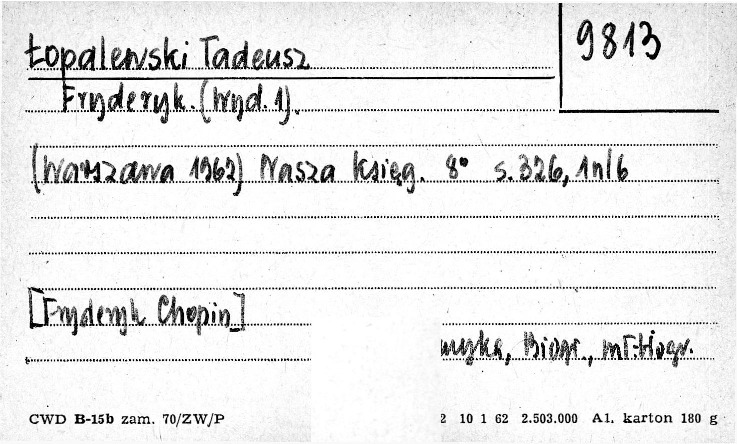 9813
Łopalewski Tadeusz
Fryderyk. (Wyd. 1).
(Warszawa 1962) Nasza Księg. 8° s. 326, 1nl6
[Fryderyk Chopin]
Biogr.,
CWD B-15b zam. 70/ZW/P 2 10 1 62 2.503.000 A1. karton 180 g